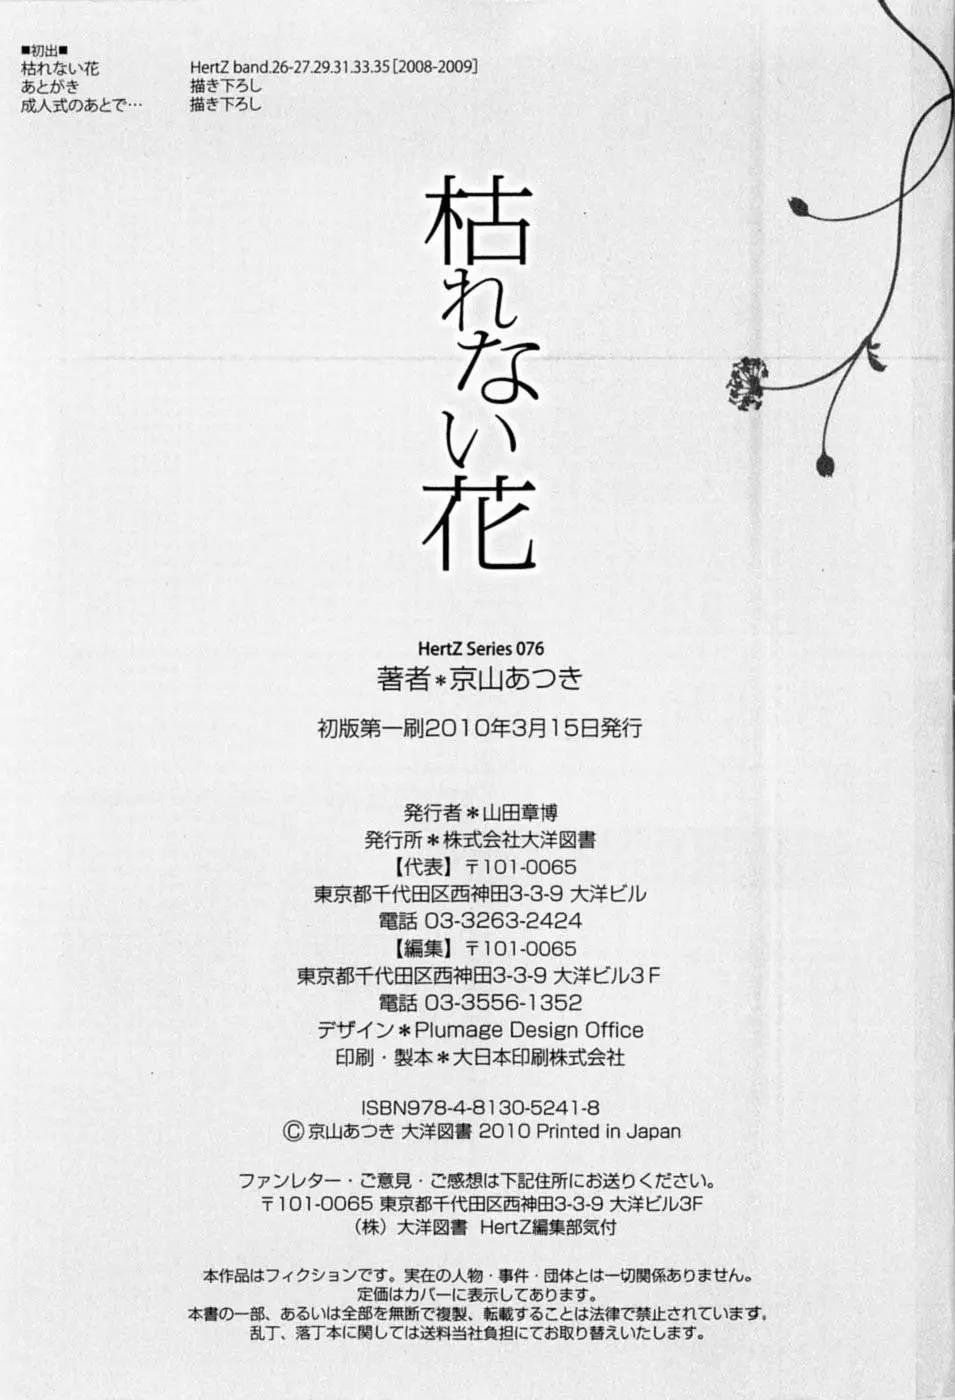 ■初出■
枯れない花 HertZ band.26-27.29.31.33.35[2008-2009]
あとがき 描き下ろし
成人式のあとで… 描き下ろし
枯れない花
HertZ Series 076
著者＊京山あつき
初版第一刷2010年3月15日発行
発行者＊山田章博
発行所＊株式会社大洋図書
【代表】〒101-0065
東京都千代田区西神田3-3-9 大洋ビル
電話 03-3263-2424
【編集】〒101-0065
東京都千代田区西神田3-3-9 大洋ビル3F
電話 03-3556-1352
デザイン＊Plumage Design Office
印刷・製本＊大日本印刷株式会社
ISBN978-4-8130-5241-8
©京山あつき 大洋図書 2010 Printed in Japan
ファンレター・ご意見・ご感想は下記住所にお送りください。
〒101-0065 東京都千代田区西神田3-3-9 大洋ビル3F
（株）大洋図書 HertZ編集部気付
本作品はフィクションです。実在の人物・事件・団体とは一切関係ありません。
定価はカバーに表示してあります。
本書の一部、あるいは全部を無断で複製、転載することは法律で禁止されています。
乱丁、落丁本に関しては送料当社負担にてお取り替えいたします。